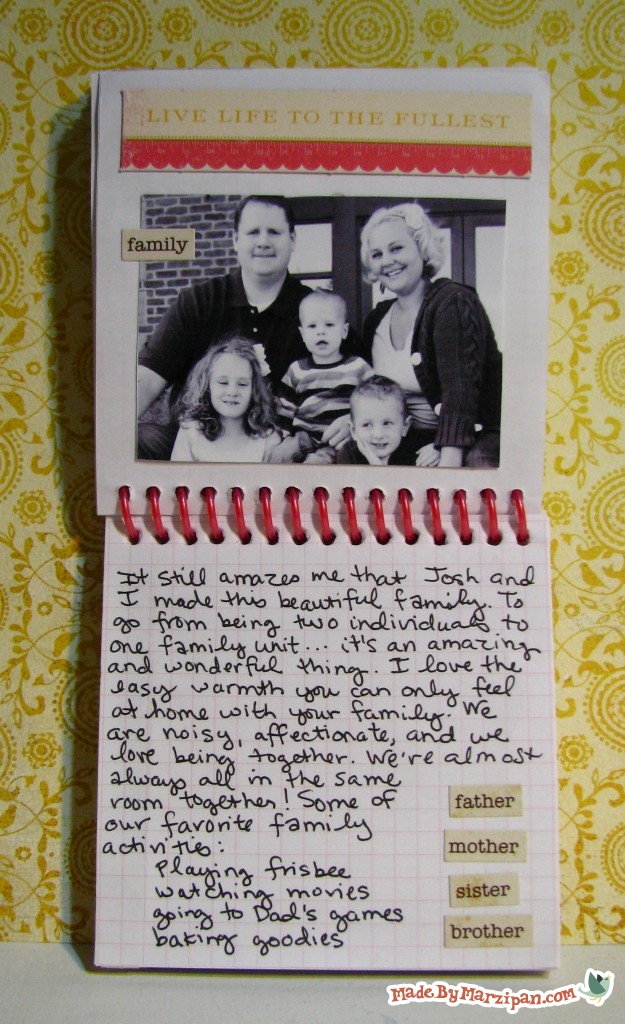 LIVE LIFE TO THE FULLEST
family
It still amazes me that Josh and
I made this beautiful family. To
go from being two individuals to
one family unit... it's an amazing
and wonderful thing. I love the
easy warmth you can only feel
at home with your family. We
are noisy, affectionate, and we
love being together. We're almost
always all in the same
room together! Some of
our favorite family
activities:
Playing frisbee
watching movies
going to Dad's games
baking goodies
father
mother
sister
brother
MadeByMarzipan.com